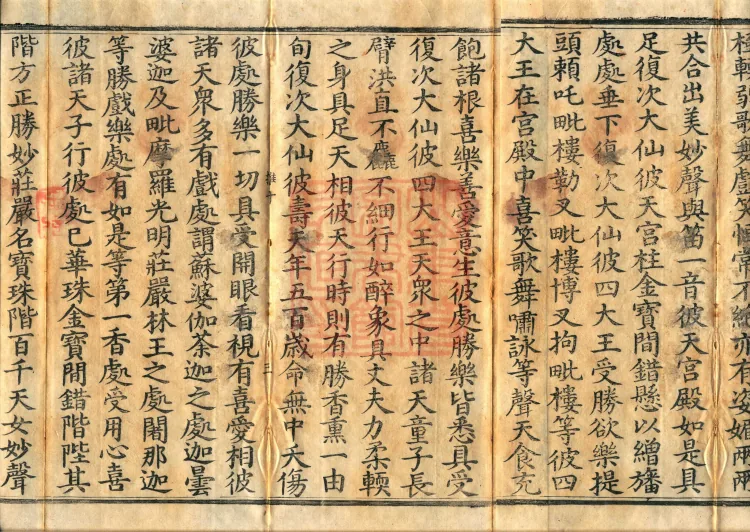 極軟弱歌舞戲笑恒常不絕亦有姿媚兩兩
共合出美妙聲與笛一音彼天宮殿如是具
足復次大仙彼天宮柱金寶間錯懸以繒旛
處處垂下復次大仙彼四大王受勝欲樂提
頭賴吒毗樓勒叉毗樓博叉拘毗樓等彼四
大王在宮殿中喜笑歌舞嘯詠等聲天食充
飽諸根喜樂善愛意生彼處勝樂皆悉具受
復次大仙彼四大王天衆之中諸天童子長
臂洪直不麤不細行如醉象具丈夫力柔輭
之身具足天相彼天行時則有勝香熏一由
旬復次大仙彼壽天年五百歲命無中夭傷
彼處勝樂一切具受開眼看視有喜愛相彼
諸天衆多有戲處謂蘇婆伽荼迦之處迦曇
婆迦及毗摩羅光明莊嚴林王之處闍那迦
等勝戲樂處有如是等第一香處受用心喜
彼諸天子行彼處已華珠金寶間錯階陛其
階方正勝妙莊嚴名寶珠階百千天女妙聲